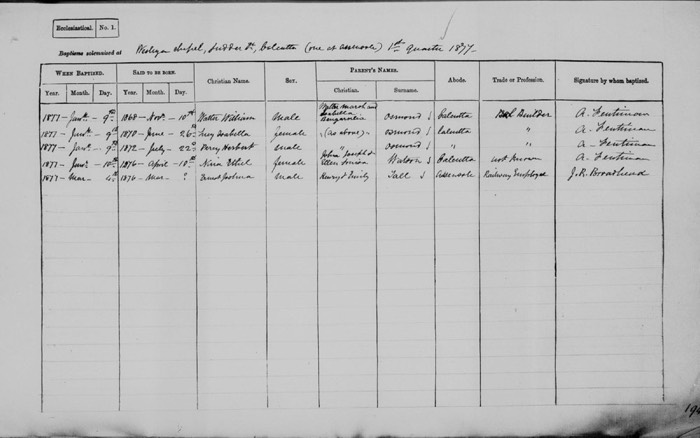 Ecclesiastical. No. 1.
Baptisms solemnized at Wesleyan Chapel, Sudder St, Calcutta (one at Assensole) 1st Quarter 1877
When Baptized. Said to be born. Christian Name. Sex. Parent's Names. Abode. Trade or Profession. Signature by whom baptized.
Year. Month. Day. Year. Month. Day. Christian. Surname.
1877 - Jany - 9th 1868 - Novr - 10th Walter William Male Walter Marsh and Isabella Osmond Calcutta Builder A. Fentiman
1877 - Jany - 9th 1870 - June - 26th Lucy Isabella female (as above) Osmond Calcutta " A. Fentiman
1877 - Jany - 9th 1872 - July - 22nd Percy Herbert male " Osmond " " A. Fentiman
1877 - Jany - 10th 1876 - April - 18th Nina Ethel female John Joseph & Ellen Watson Calcutta not known A. Fentiman
1877 - Mar - 4th 1876 - Mar - ? Ernest Joshua male Henry & Emily Tall Assensole Railway Employé J. R. Broadhead
194